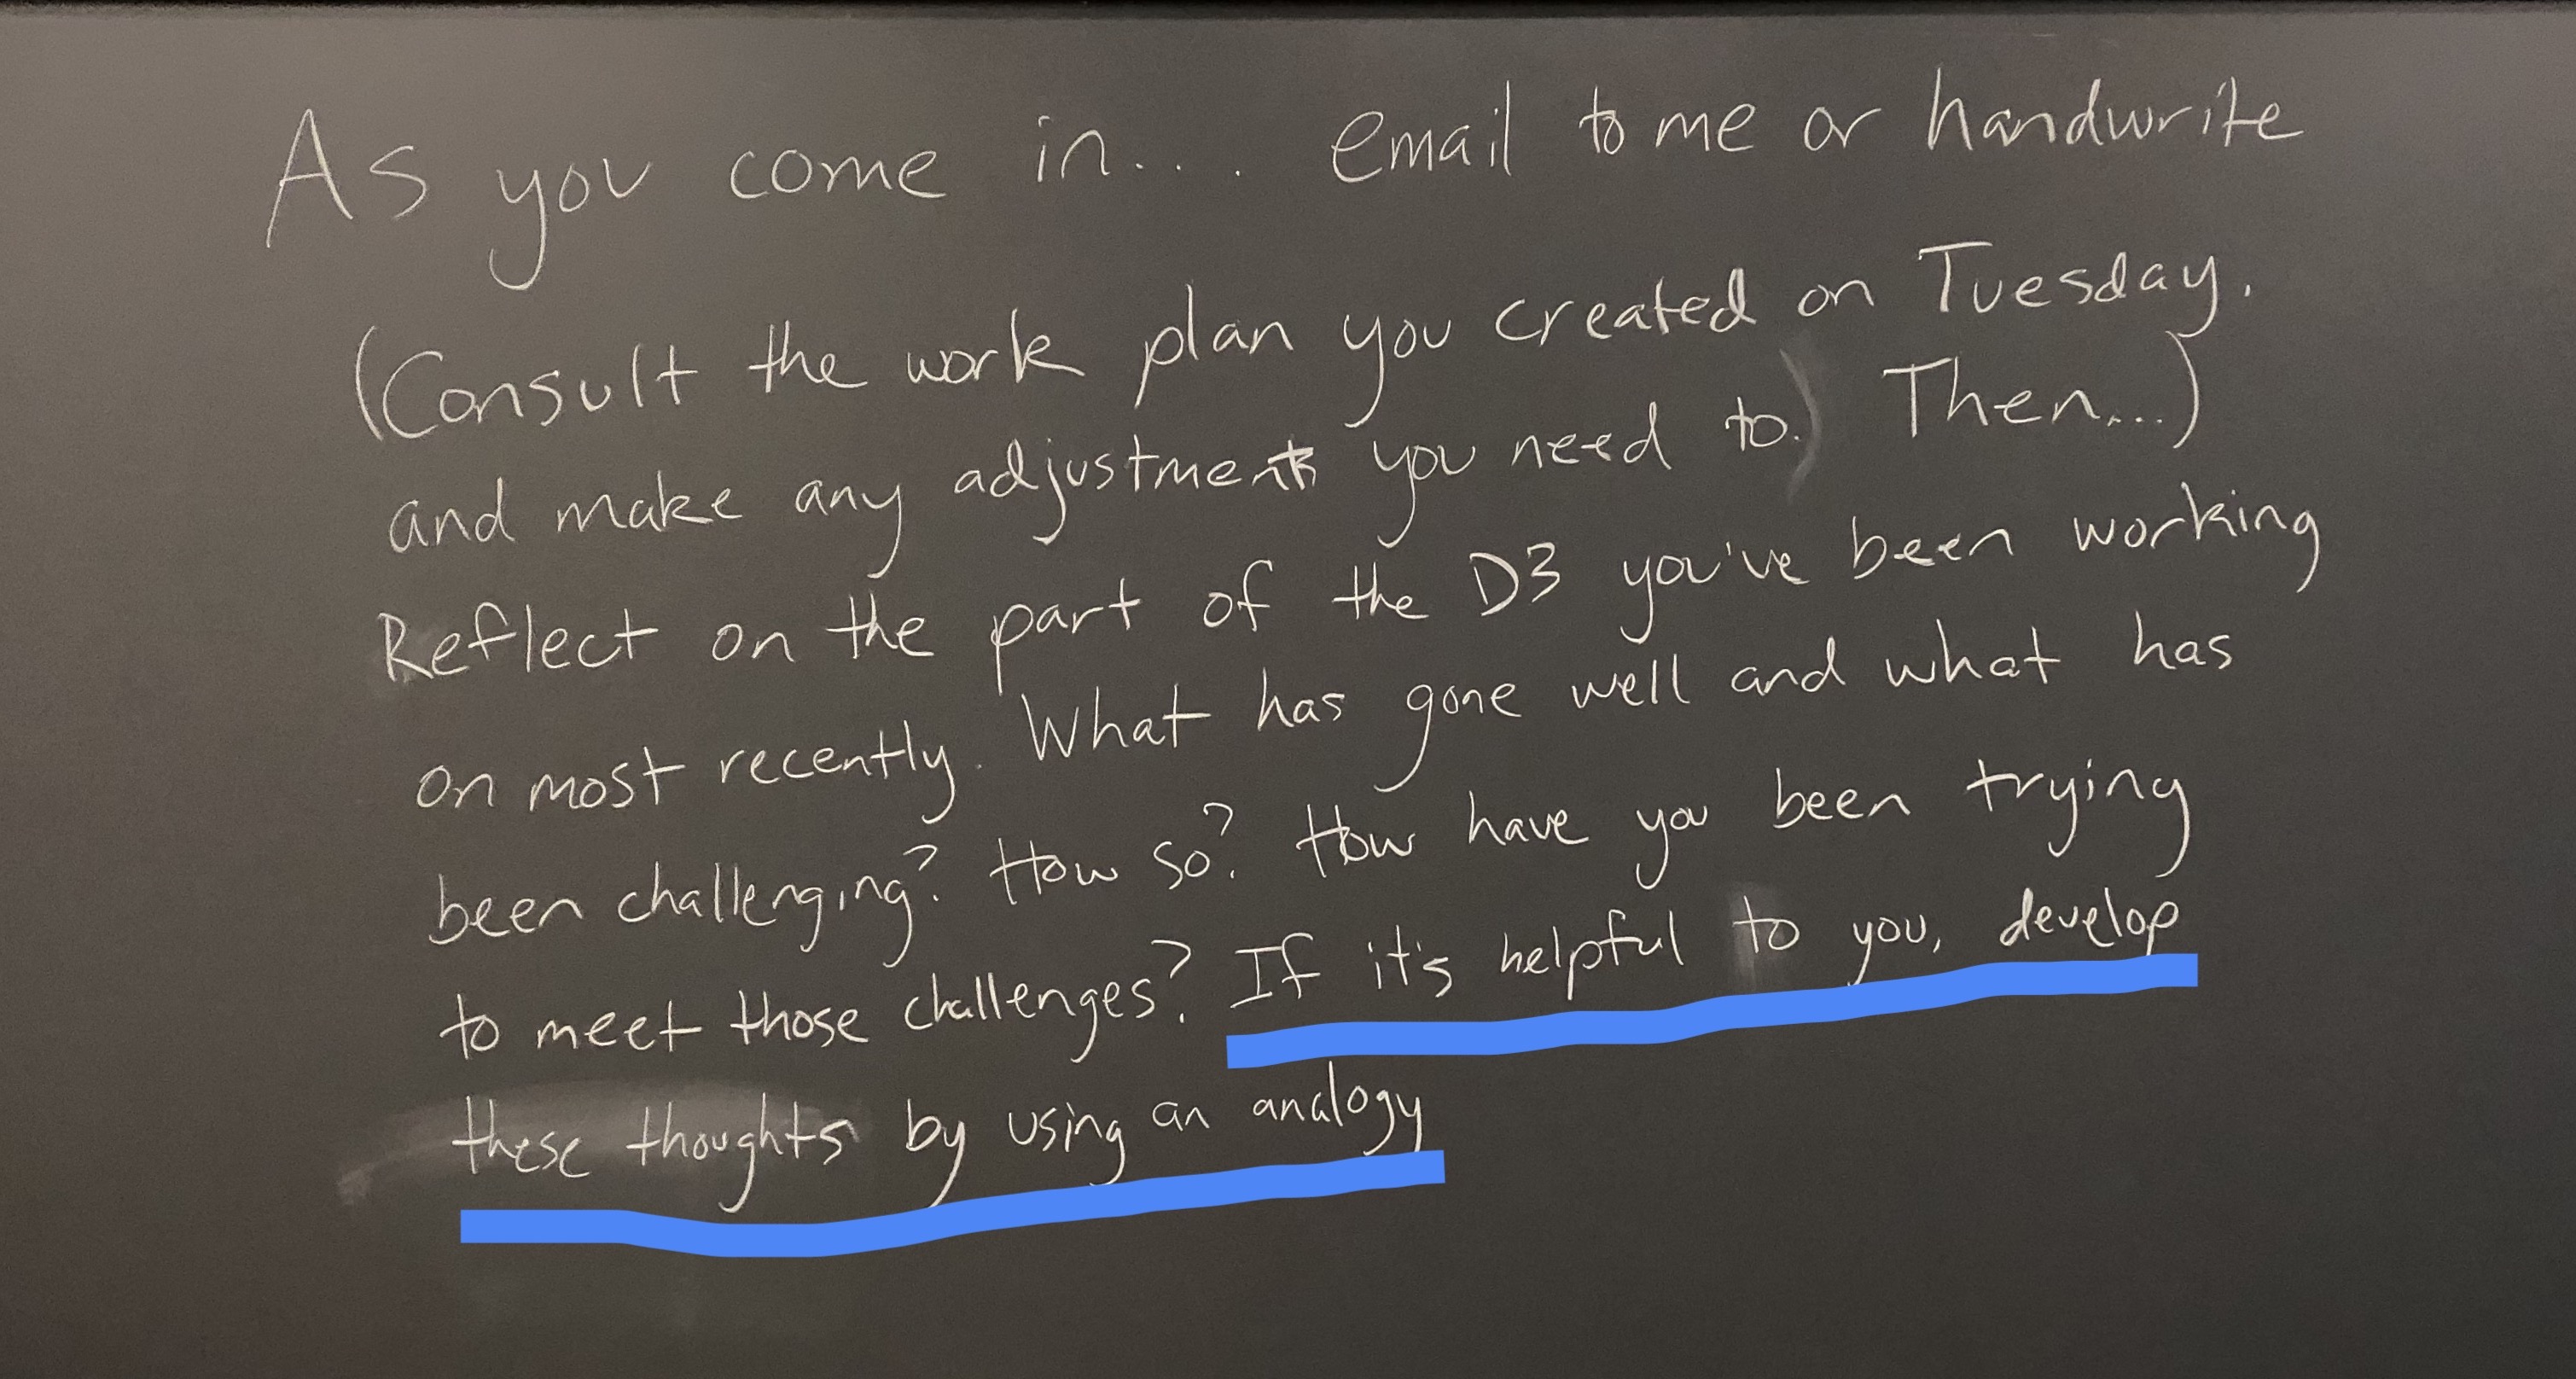 As you come in... email to me or handwrite
(Consult the work plan you created on Tuesday.
and make any adjustments you need to.) Then...)
Reflect on the part of the D3 you've been working
on most recently. What has gone well and what has
been challenging? How so? How have you been trying
to meet those challenges? If it's helpful to you, develop
these thoughts by using an analogy